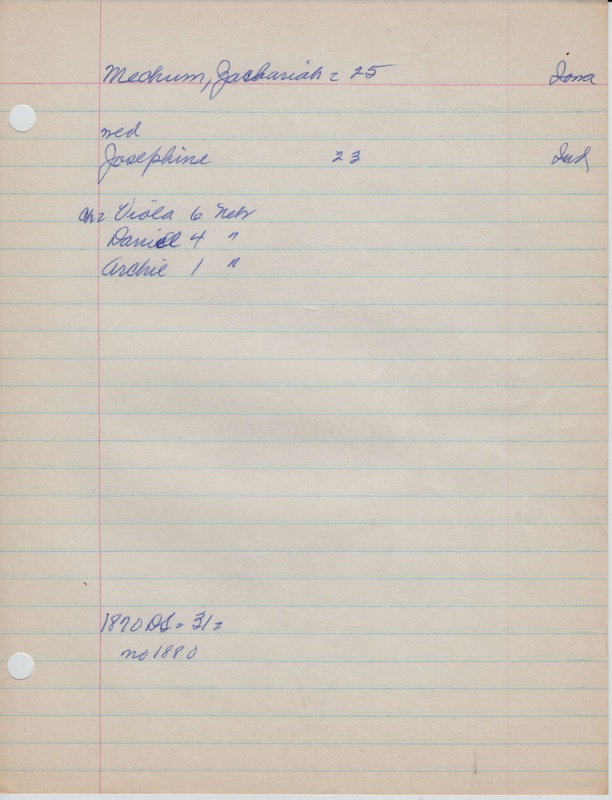 Mechum, Zachariah = 25 Iowa
med
Josephine 23 Ind
ch = Viola 6 Nebr
Daniel 4 "
Archie 1 "
1870 DS = 31 =
no 1880